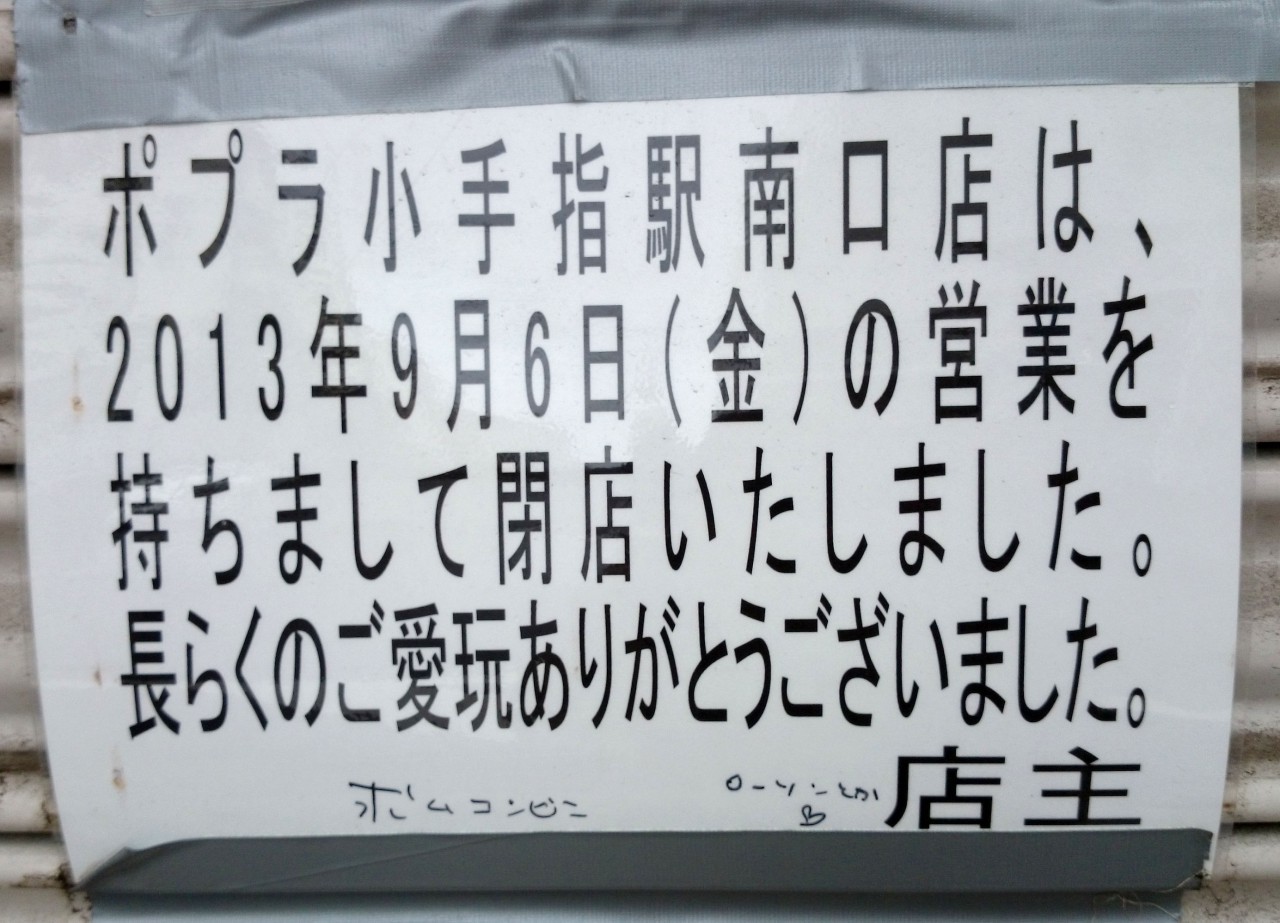 ポプラ小手指駅南口店は、
2013年9月6日(金)の営業を
持ちまして閉店いたしました。
長らくのご愛玩ありがとうございました。
店主
ボムコンビニ
ローソンとか